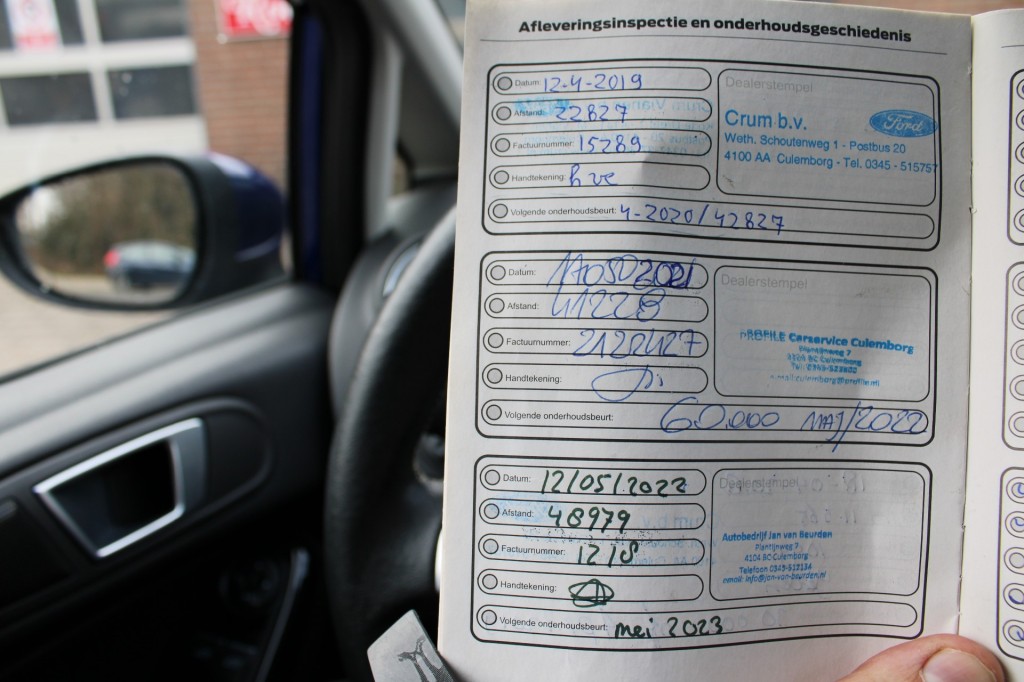 Afleveringsinspectie en onderhoudsgeschiedenis
Datum: 12-4-2019
Afstand: 22827
Factuurnummer: 15289
Handtekening:
Volgende onderhoudsbeurt: 4-2020/42827
Dealerstempel
Crum b.v. Ford
Weth. Schoutenweg 1 - Postbus 20
4100 AA Culemborg - Tel. 0345 - 515757
Datum: 11052021
Afstand: 41228
Factuurnummer: 2122427
Handtekening:
Volgende onderhoudsbeurt: 60.000 MAJ/2022
Dealerstempel
PROFILE Carservice Culemborg
Plantijnweg 7
BC Culemborg
e-mail culemborg@profile.nl
Datum: 12/05/2022
Afstand: 48979
Factuurnummer: 1218
Handtekening:
Volgende onderhoudsbeurt: mei 2023
Dealerstempel
Autobedrijf Jan van Beurden
Plantijnweg 7
4104 BC Culemborg
Telefoon 0345-512134
email: info@jan-van-beurden.nl